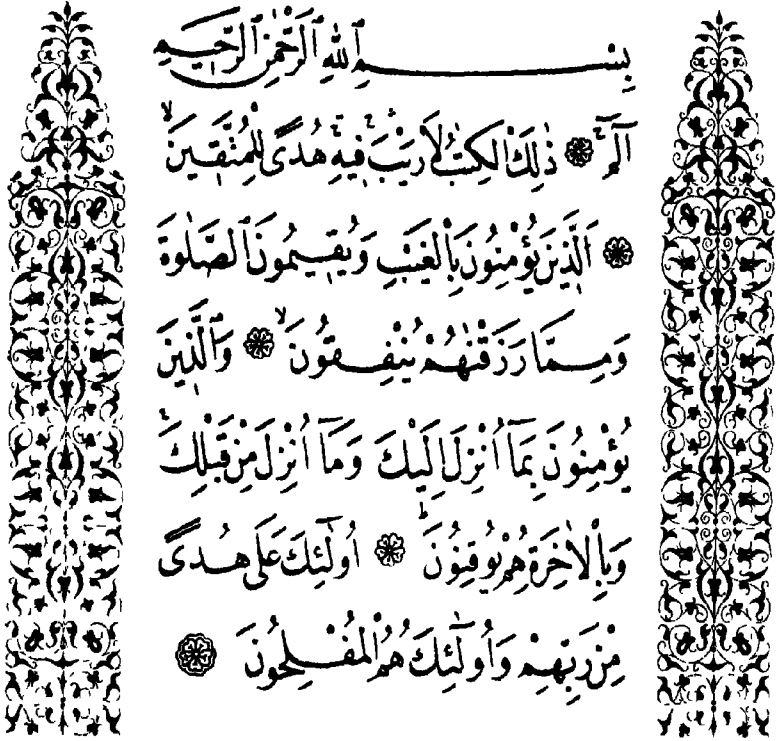 بِسْمِ ٱللّٰهِ ٱلرَّحْمٰنِ ٱلرَّحِيمِ
الٓمٓ ۚ ۝ ذٰلِكَ الْكِتَابُ لَا رَيْبَ ۛ فِيهِ ۛ هُدًى لِلْمُتَّقِينَ ۙ
۝ اَلَّذِينَ يُؤْمِنُونَ بِالْغَيْبِ وَيُقِيمُونَ ٱلصَّلٰوةَ
وَمِمَّا رَزَقْنَاهُمْ يُنْفِقُونَ ۙ ۝ وَٱلَّذِينَ
يُؤْمِنُونَ بِمَٓا اُنْزِلَ اِلَيْكَ وَمَٓا اُنْزِلَ مِنْ قَبْلِكَ ۚ
وَبِالْاٰخِرَةِ هُمْ يُوقِنُونَ ؕ ۝ اُولٰٓئِكَ عَلٰى هُدًى
مِنْ رَبِّهِمْ وَاُولٰٓئِكَ هُمُ الْمُفْلِحُونَ ۝